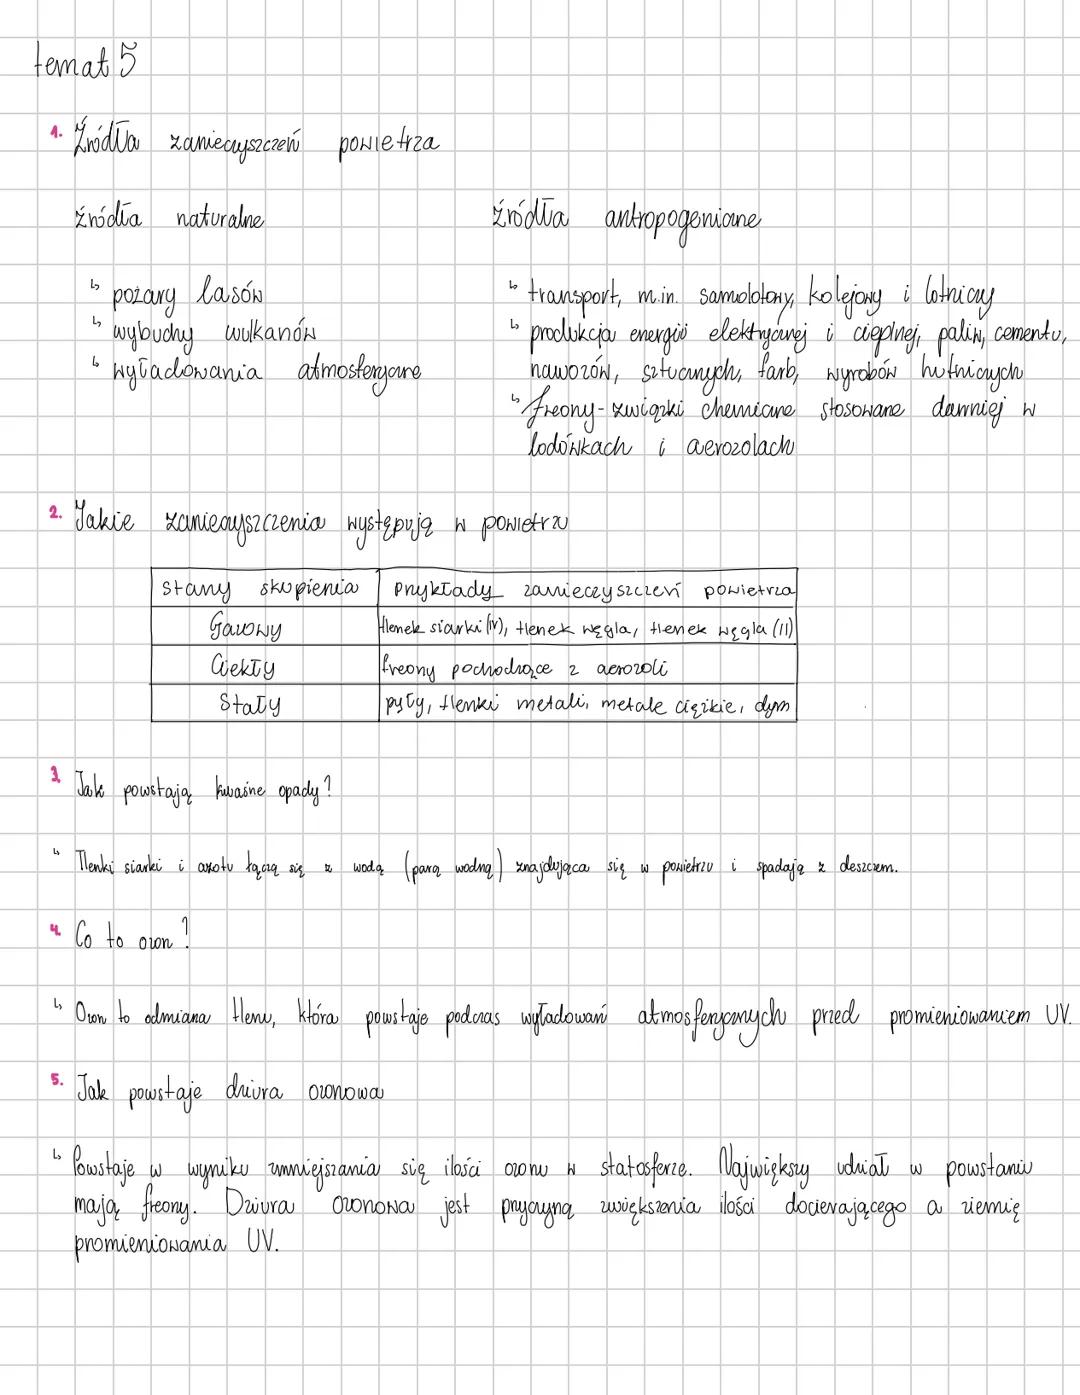 temat 5
1. Źródła zanieczyszczeń powietrza
źródła naturalne
źródła antropogeniczne
↳ pożary lasów
↳ wybuchy wulkanów
↳ wyładowania atmosferyczne
↳ transport, m.in. samolotowy, kolejowy i lotniczy
↳ produkcja energii elektrycznej i cieplnej, paliw, cementu,
nawozów, sztucznych, farb, wyrobów hutniczych
↳ freony - związki chemiczne stosowane dawniej w
lodówkach i aerozolach
2. Jakie zanieczyszczenia występują w powietrzu
stany skupienia przykłady zanieczyszczeń powietrza
Gazowy tlenek siarki (IV), tlenek węgla, tlenek węgla (II)
Ciekły freony pochodzące z aerozoli
Stały pyły, tlenki metali, metale ciężkie, dym
3. Jak powstają kwaśne opady?
↳ Tlenki siarki i azotu łączą się z wodą (parą wodną) znajdująca się w powietrzu i spadają z deszczem.
4. Co to ozon?
↳ Ozon to odmiana tlenu, która powstaje podczas wyładowań atmosferycznych przed promieniowaniem UV.
5. Jak powstaje dziura ozonowa
↳ Powstaje w wyniku zmniejszania się ilości ozonu w statosferze. Największy udział w powstaniu
mają freony. Dziura ozonowa jest przyczyną zwiększenia ilości docierającego a ziemię
promieniowania UV.